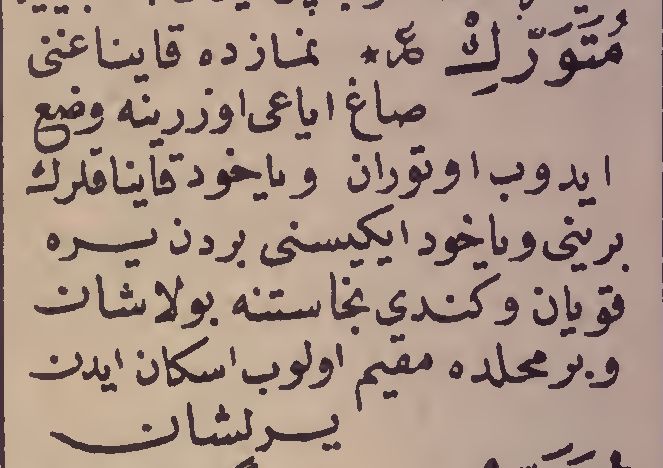 مُتَوَرِّكْ ع * نمازده قایناغنی
صاغ ایاغی اوزرینه وضع
ایدوب اوتوران ویاخود قایناقلرك
برینی ویاخود ایکیسنی بردن یره
قویان وکندی نجاستنه بولاشان
وبر محلده مقیم اولوب اسکان ایدن
یرلشان